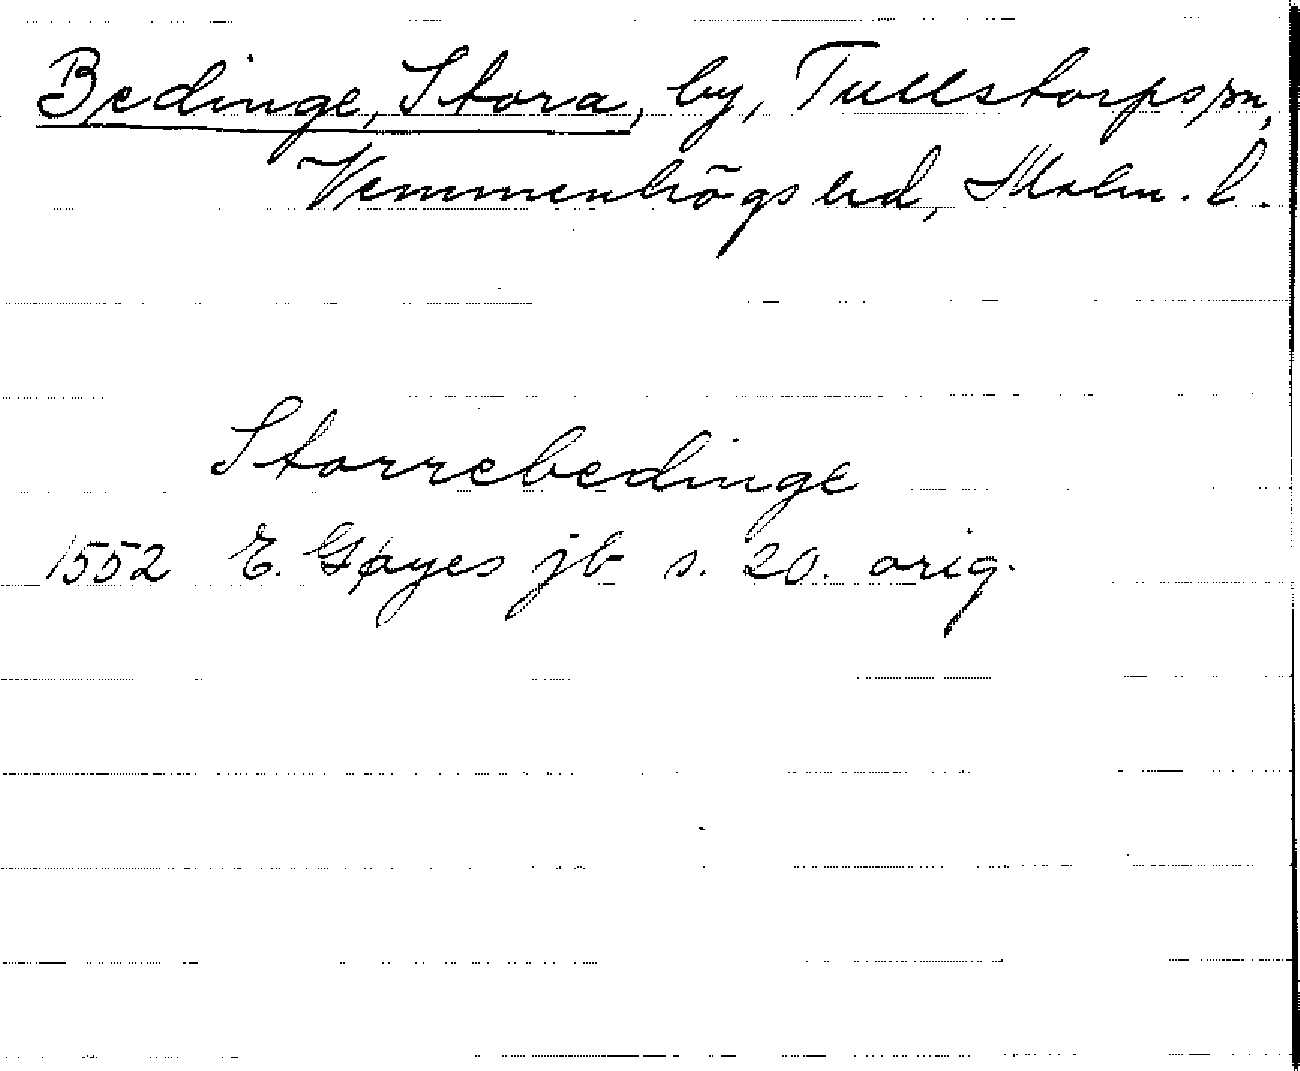 Bedinge, Stora, by, Tullstorps sn,
Vemmenhögs hd, Malm. l.
Storrebedinge
1552 E. Gøyes jb s. 20. orig.